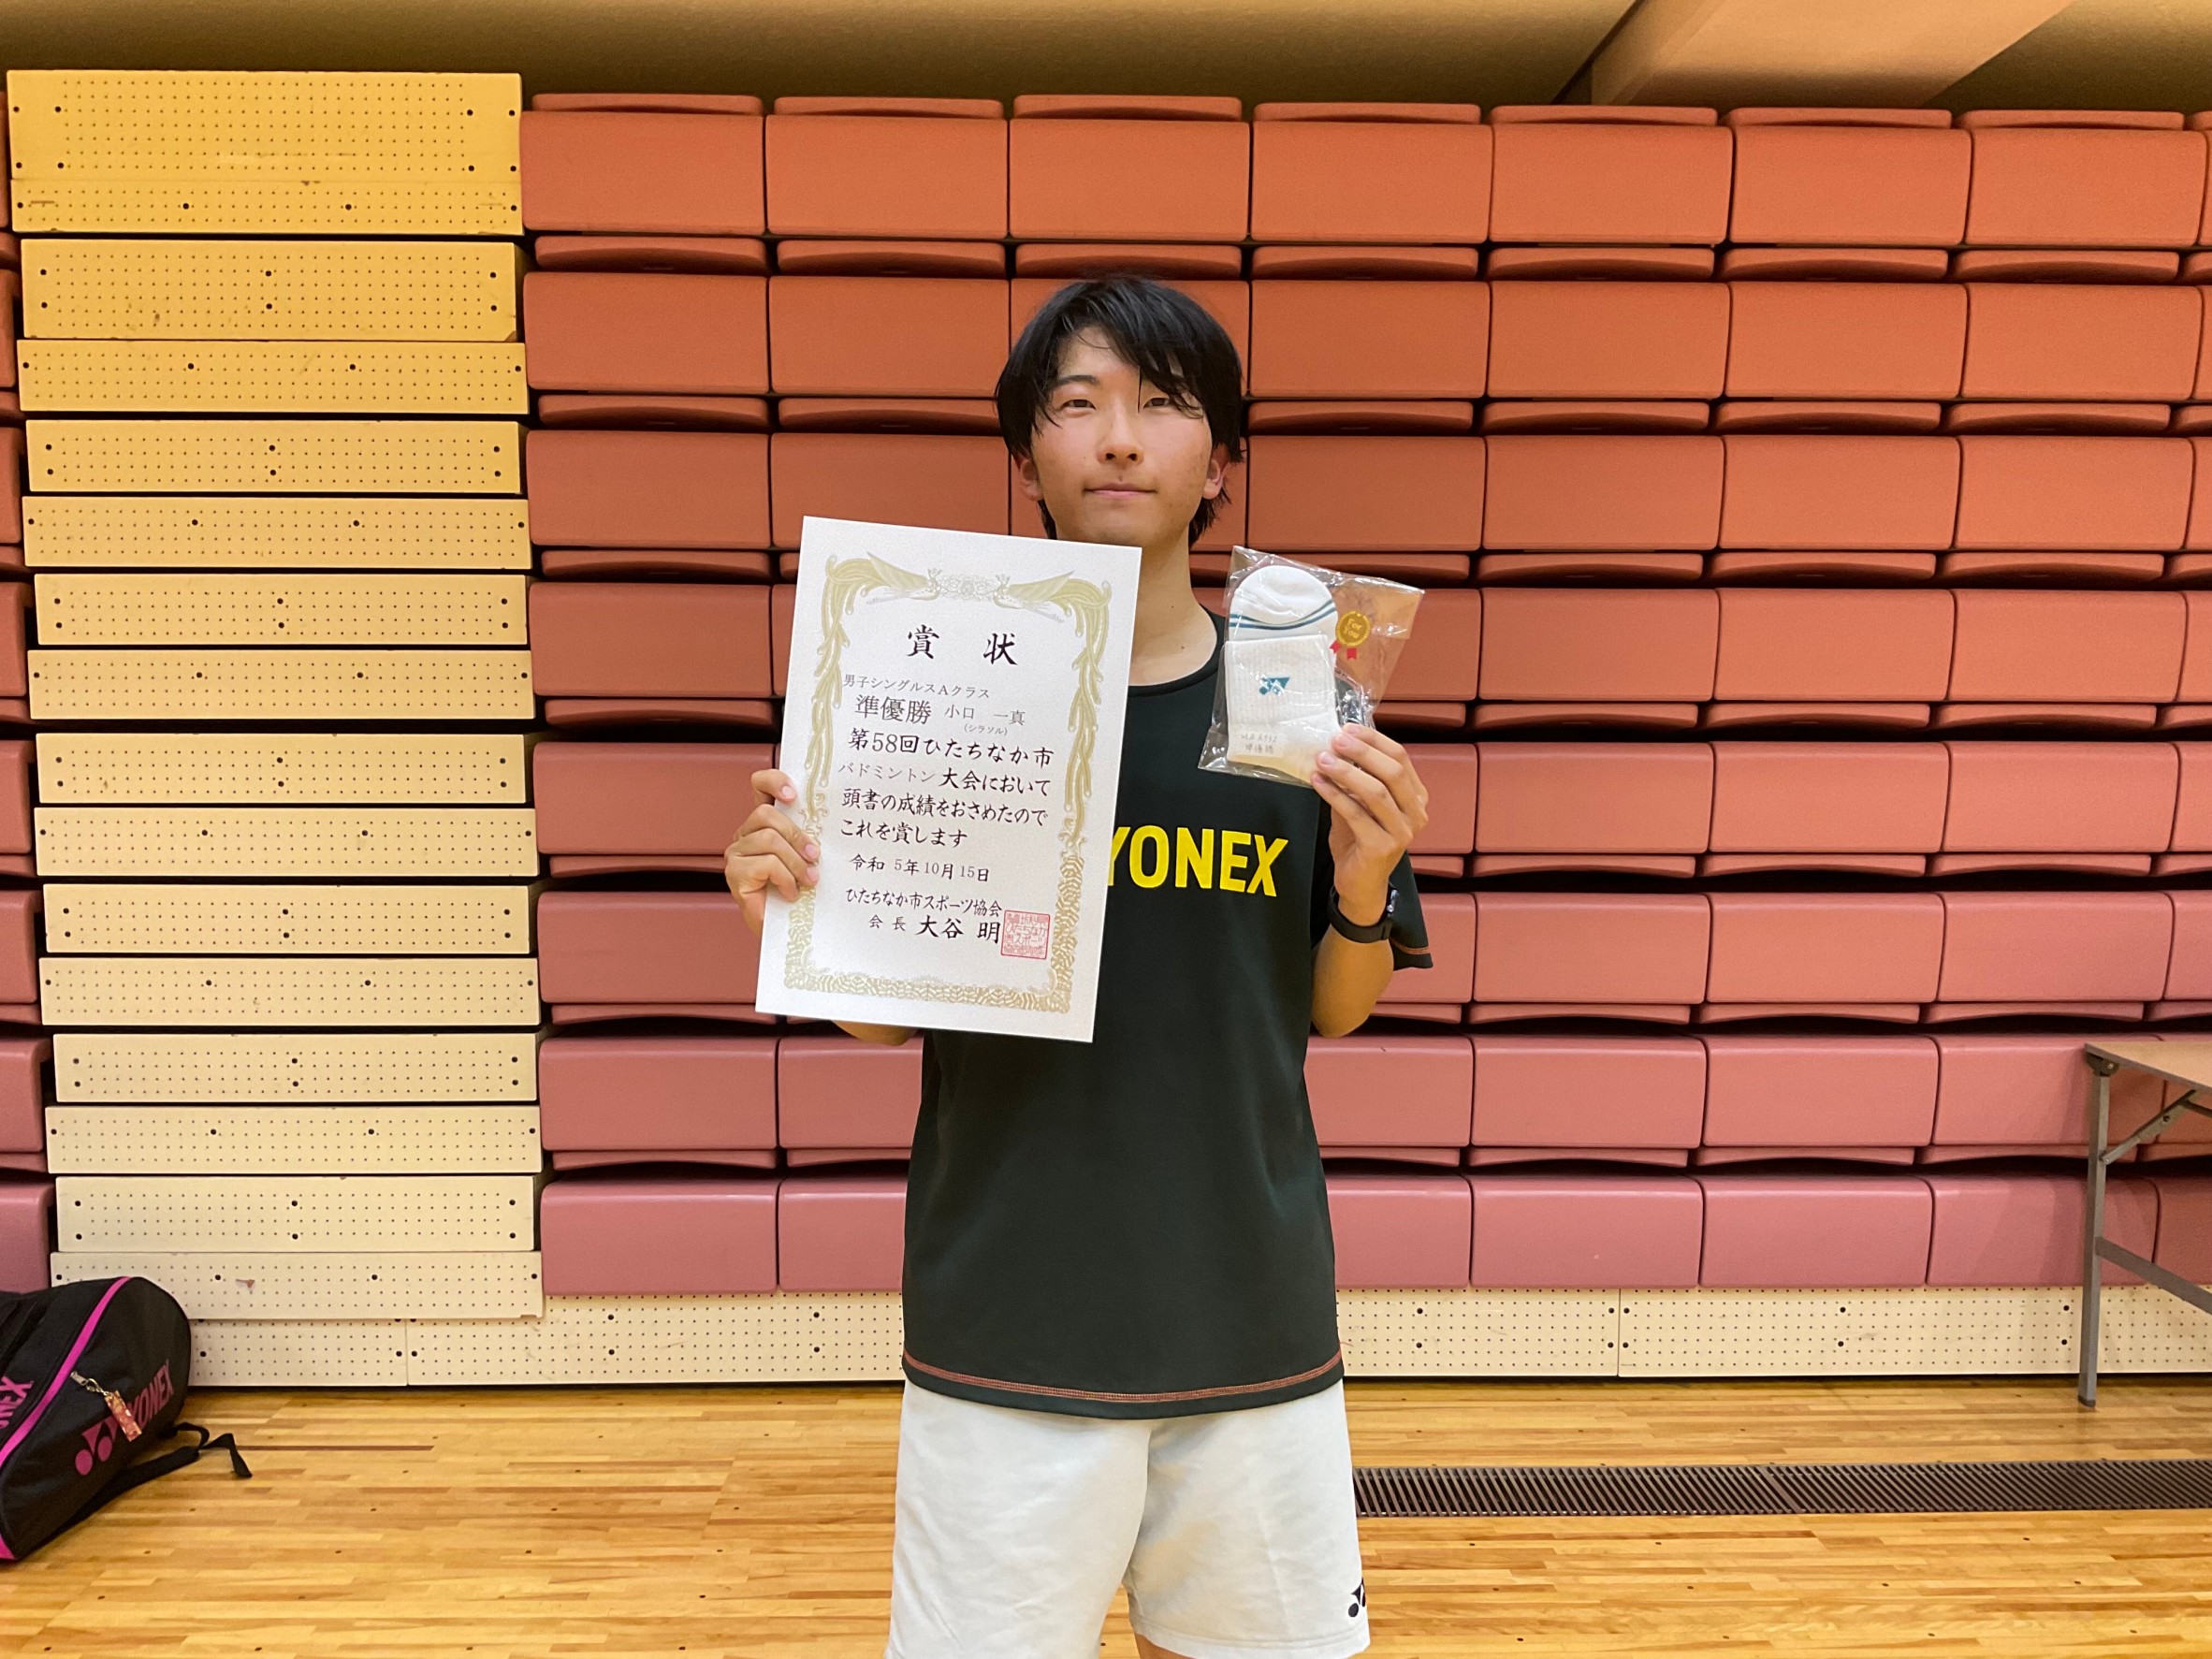 賞 状
男子シングルスAクラス
準優勝 小口 一真
(シラソル)
第58回ひたちなか市
バドミントン大会において
頭書の成績をおさめたので
これを賞します
令和 5年10月15日
ひたちなか市スポーツ協会
会長 大谷 明
For
You
YONEX
YONEX